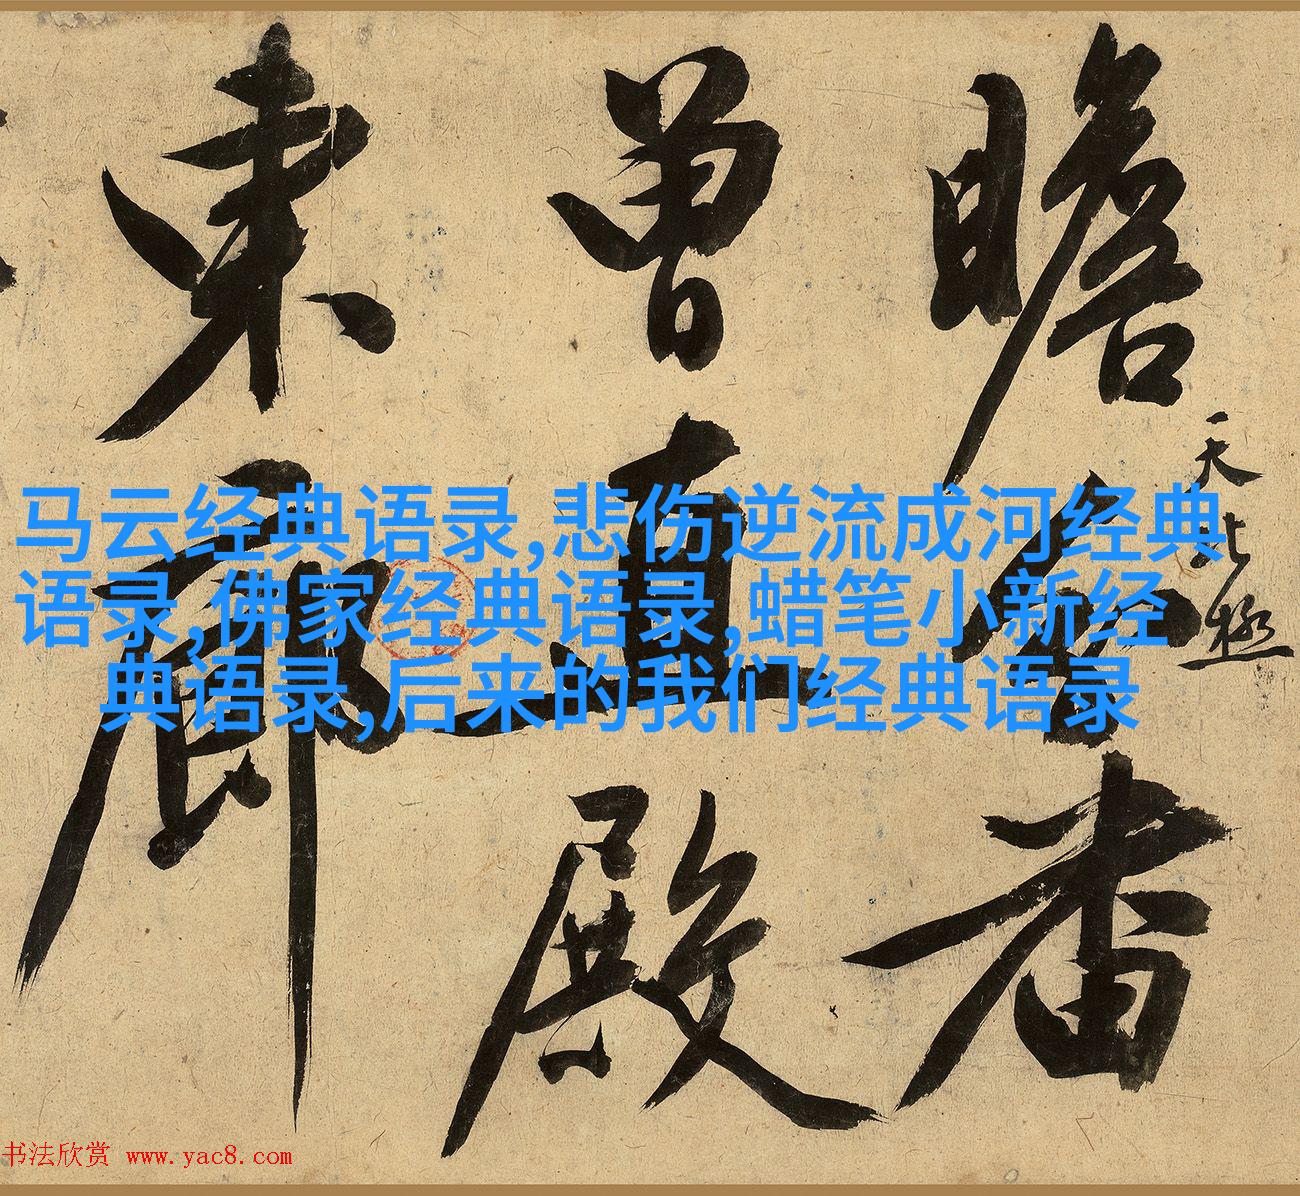 马云经典语录,悲伤逆流成河经典
语录,佛家经典语录,蜡笔小新经
典语录,后来的我们经典语录
瞻
天北極
曾直殿
東廊
书法欣赏 www.yac8.com